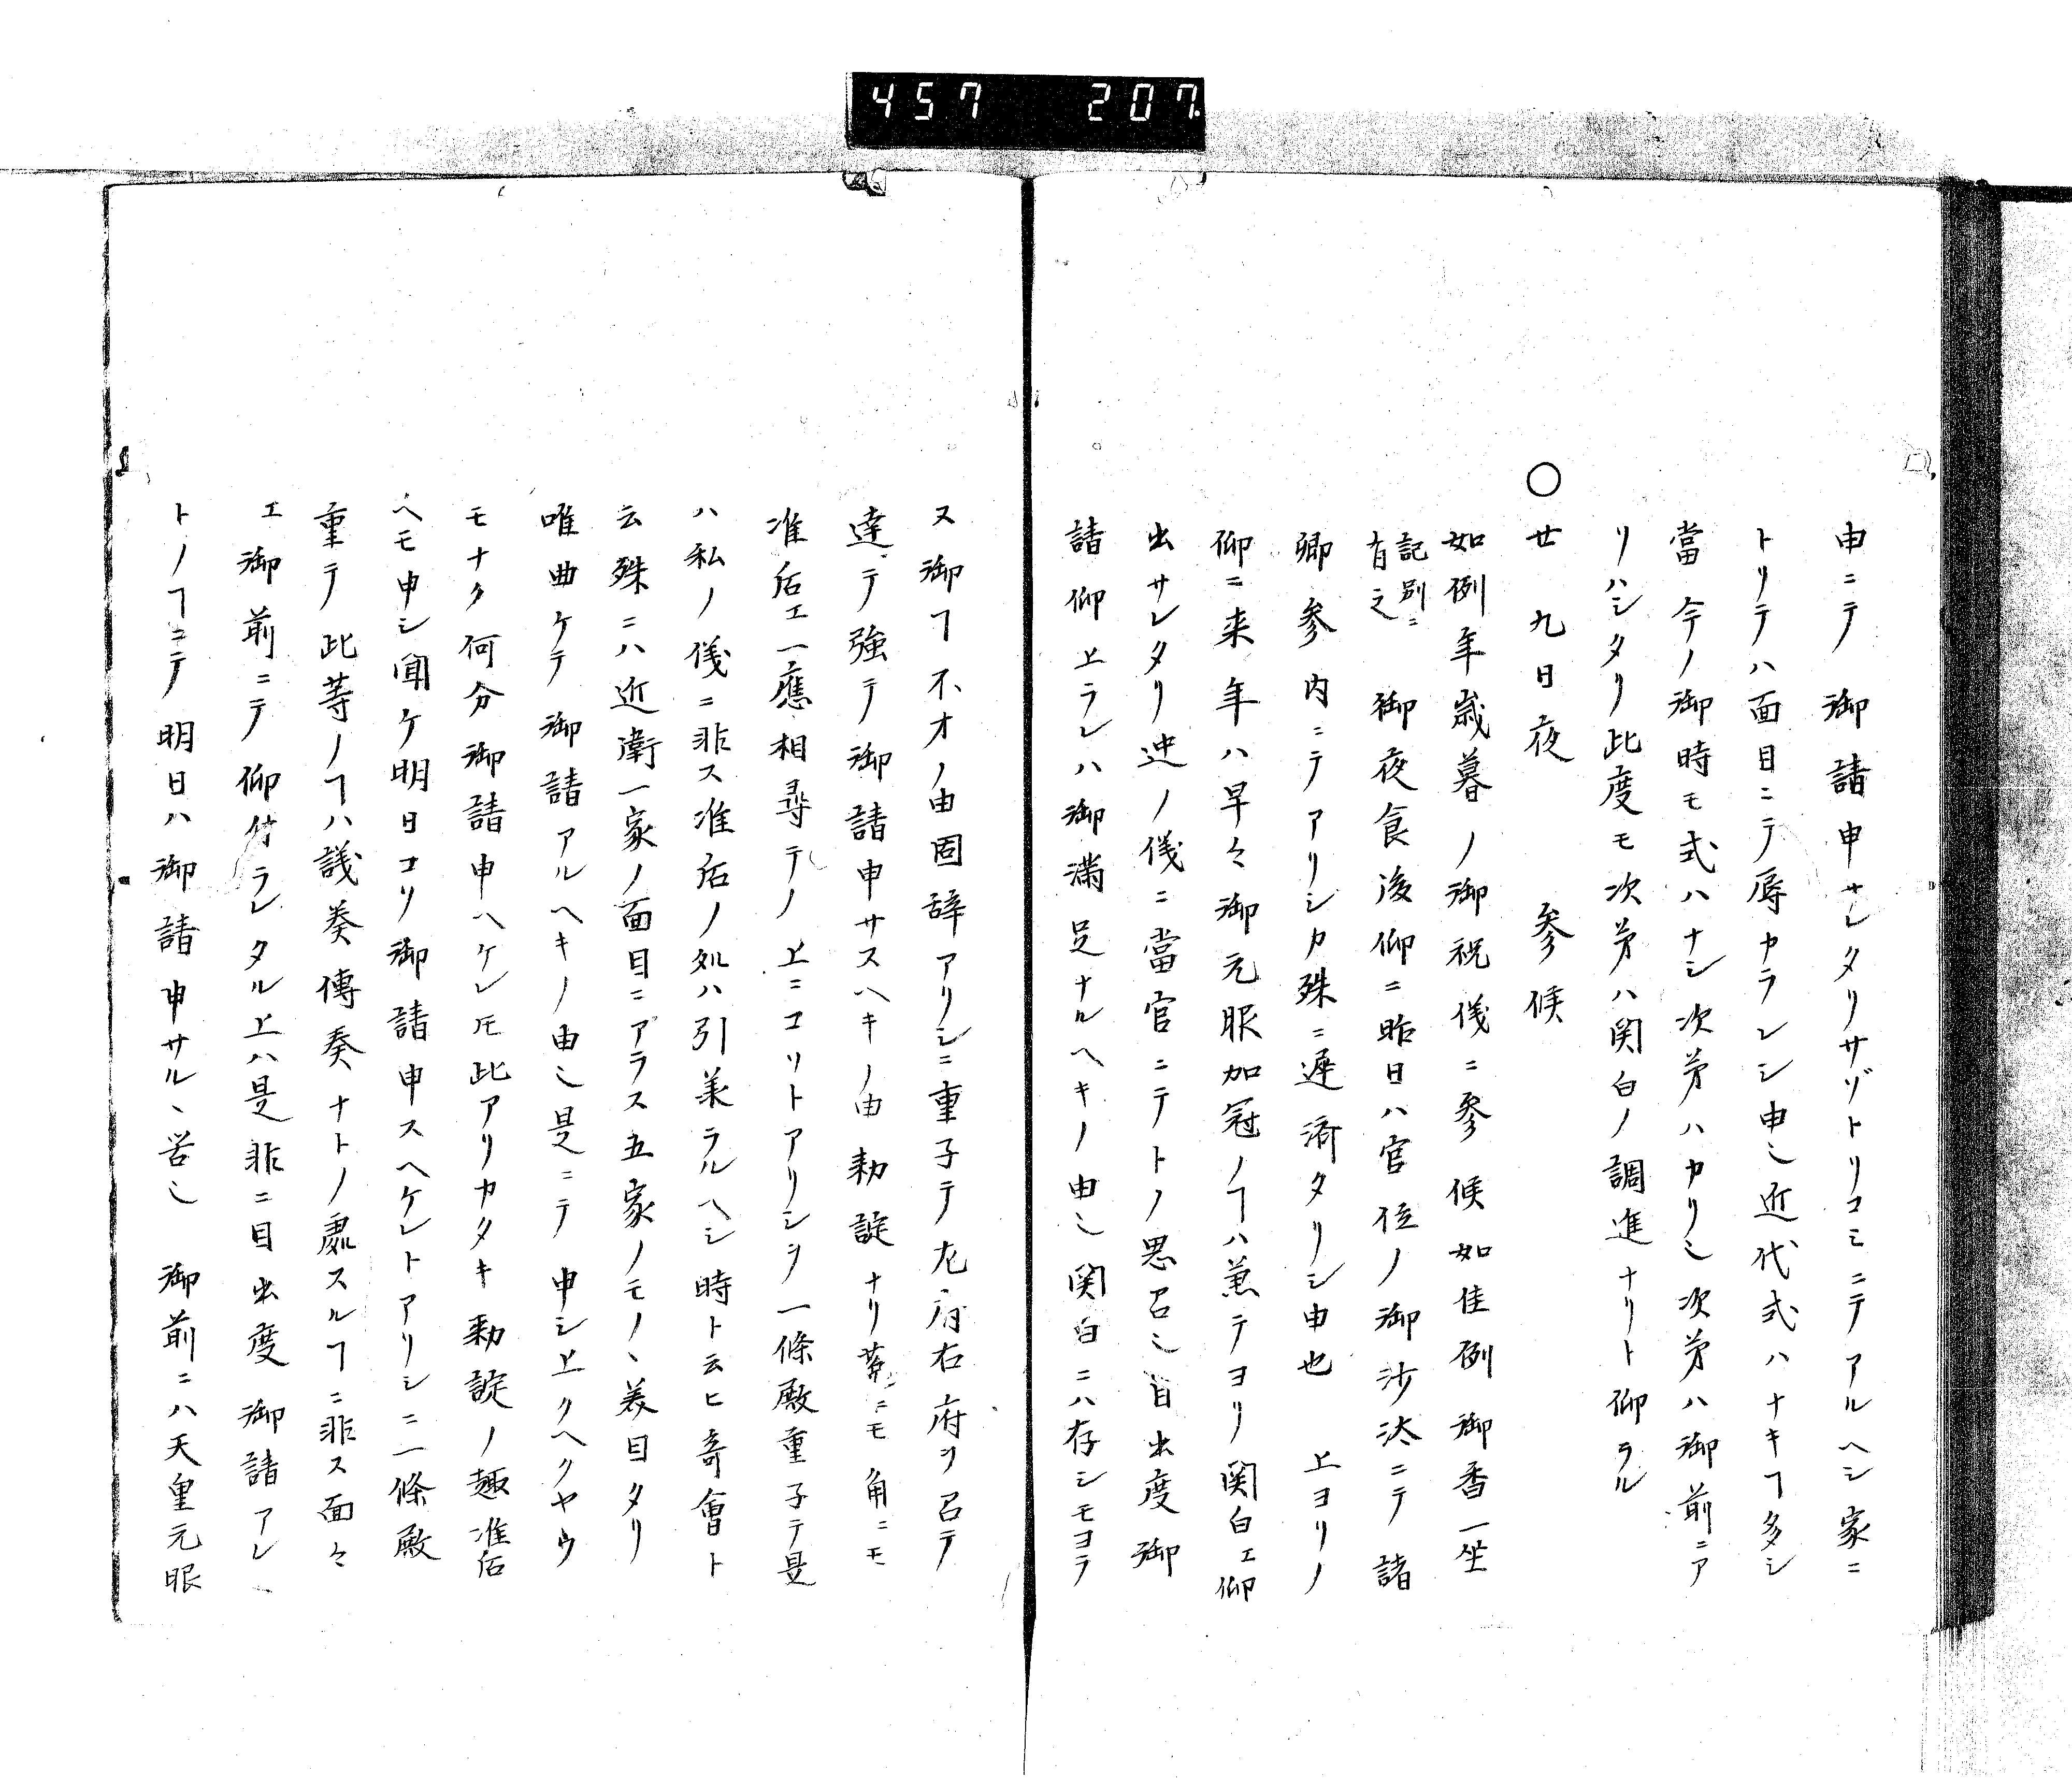 457 207
申ニテ 御請申サレタリサゾトリコミニテアルヘシ家ニ
トリテハ面目ニテ辱カラレシ申シ近代式ハナキヿ多シ
當今ノ御時モ式ハナシ次第ハカリシ次第ハ御前ニア
リハシタリ此度モ次第ハ関白ノ調進ナリト仰ラル
〇廿九日夜 参候
如例年歳暮ノ御祝儀ニ参候如佳例御香一坐
記別ニ有之 御夜食後仰ニ昨日ハ官位ノ御沙汰ニテ諸
卿参内ニテアリシカ殊ニ遅済タリシ申也 上ヨリノ
仰ニ来年ハ早々御元服加冠ノヿハ兼テヨリ関白エ仰
出サレタリ迚ノ儀ニ當官ニテトノ思召シ目出度御
請仰上ラレハ御満足ナルヘキノ由シ関白ニハ存シモヨラ
ヌ御ヿ不才ノ由固辞アリシニ重子テ左府右府ヲ召テ
達テ強テ御請申サスヘキノ由勅諚ナリ菟ニモ角ニモ
准后エ一應相尋テノ上ニコソトアリシヲ一條殿重子テ是
ハ私ノ儀ニ非ス准后ノ処ハ引業ラルヘシ時ト云ヒ寄會ト
云殊ニハ近衛一家ノ面目ニアラス五家ノモノヽ美目タリ
唯曲ケテ御請アルヘキノ由シ是ニテ申シ上クヘクヤウ
モナク何分御請申ヘケレ𪜈此アリカタキ勅諚ノ趣准后
ヘモ申シ聞ケ明日コソ御請申スヘケレトアリシニ一條殿
重テ此等ノヿハ議奏傳奏ナトノ處スルヿニ非ス面々
エ御前ニテ仰付ラレタル上ハ是非ニ目出度御請アレ、
トノヿニテ明日ハ御請申サル、苦シ 御前ニハ天皇元服